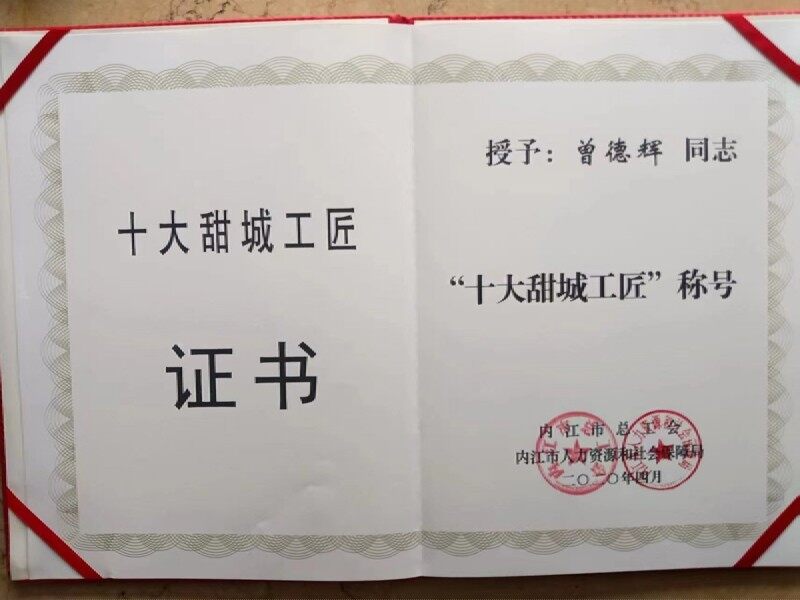 十大甜城工匠
证书
授予：曾德辉 同志
“十大甜城工匠”称号
内江市总工会
内江市人力资源和社会保障局
二〇二〇年四月